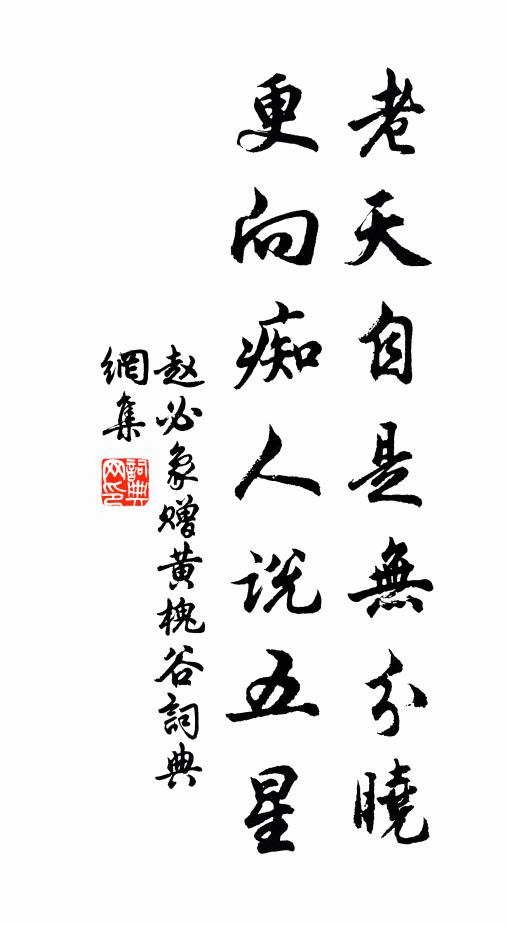 老天自是無分曉
更向痴人说五星
赵必象赠黄槐谷詞典
網集
詞典
网印